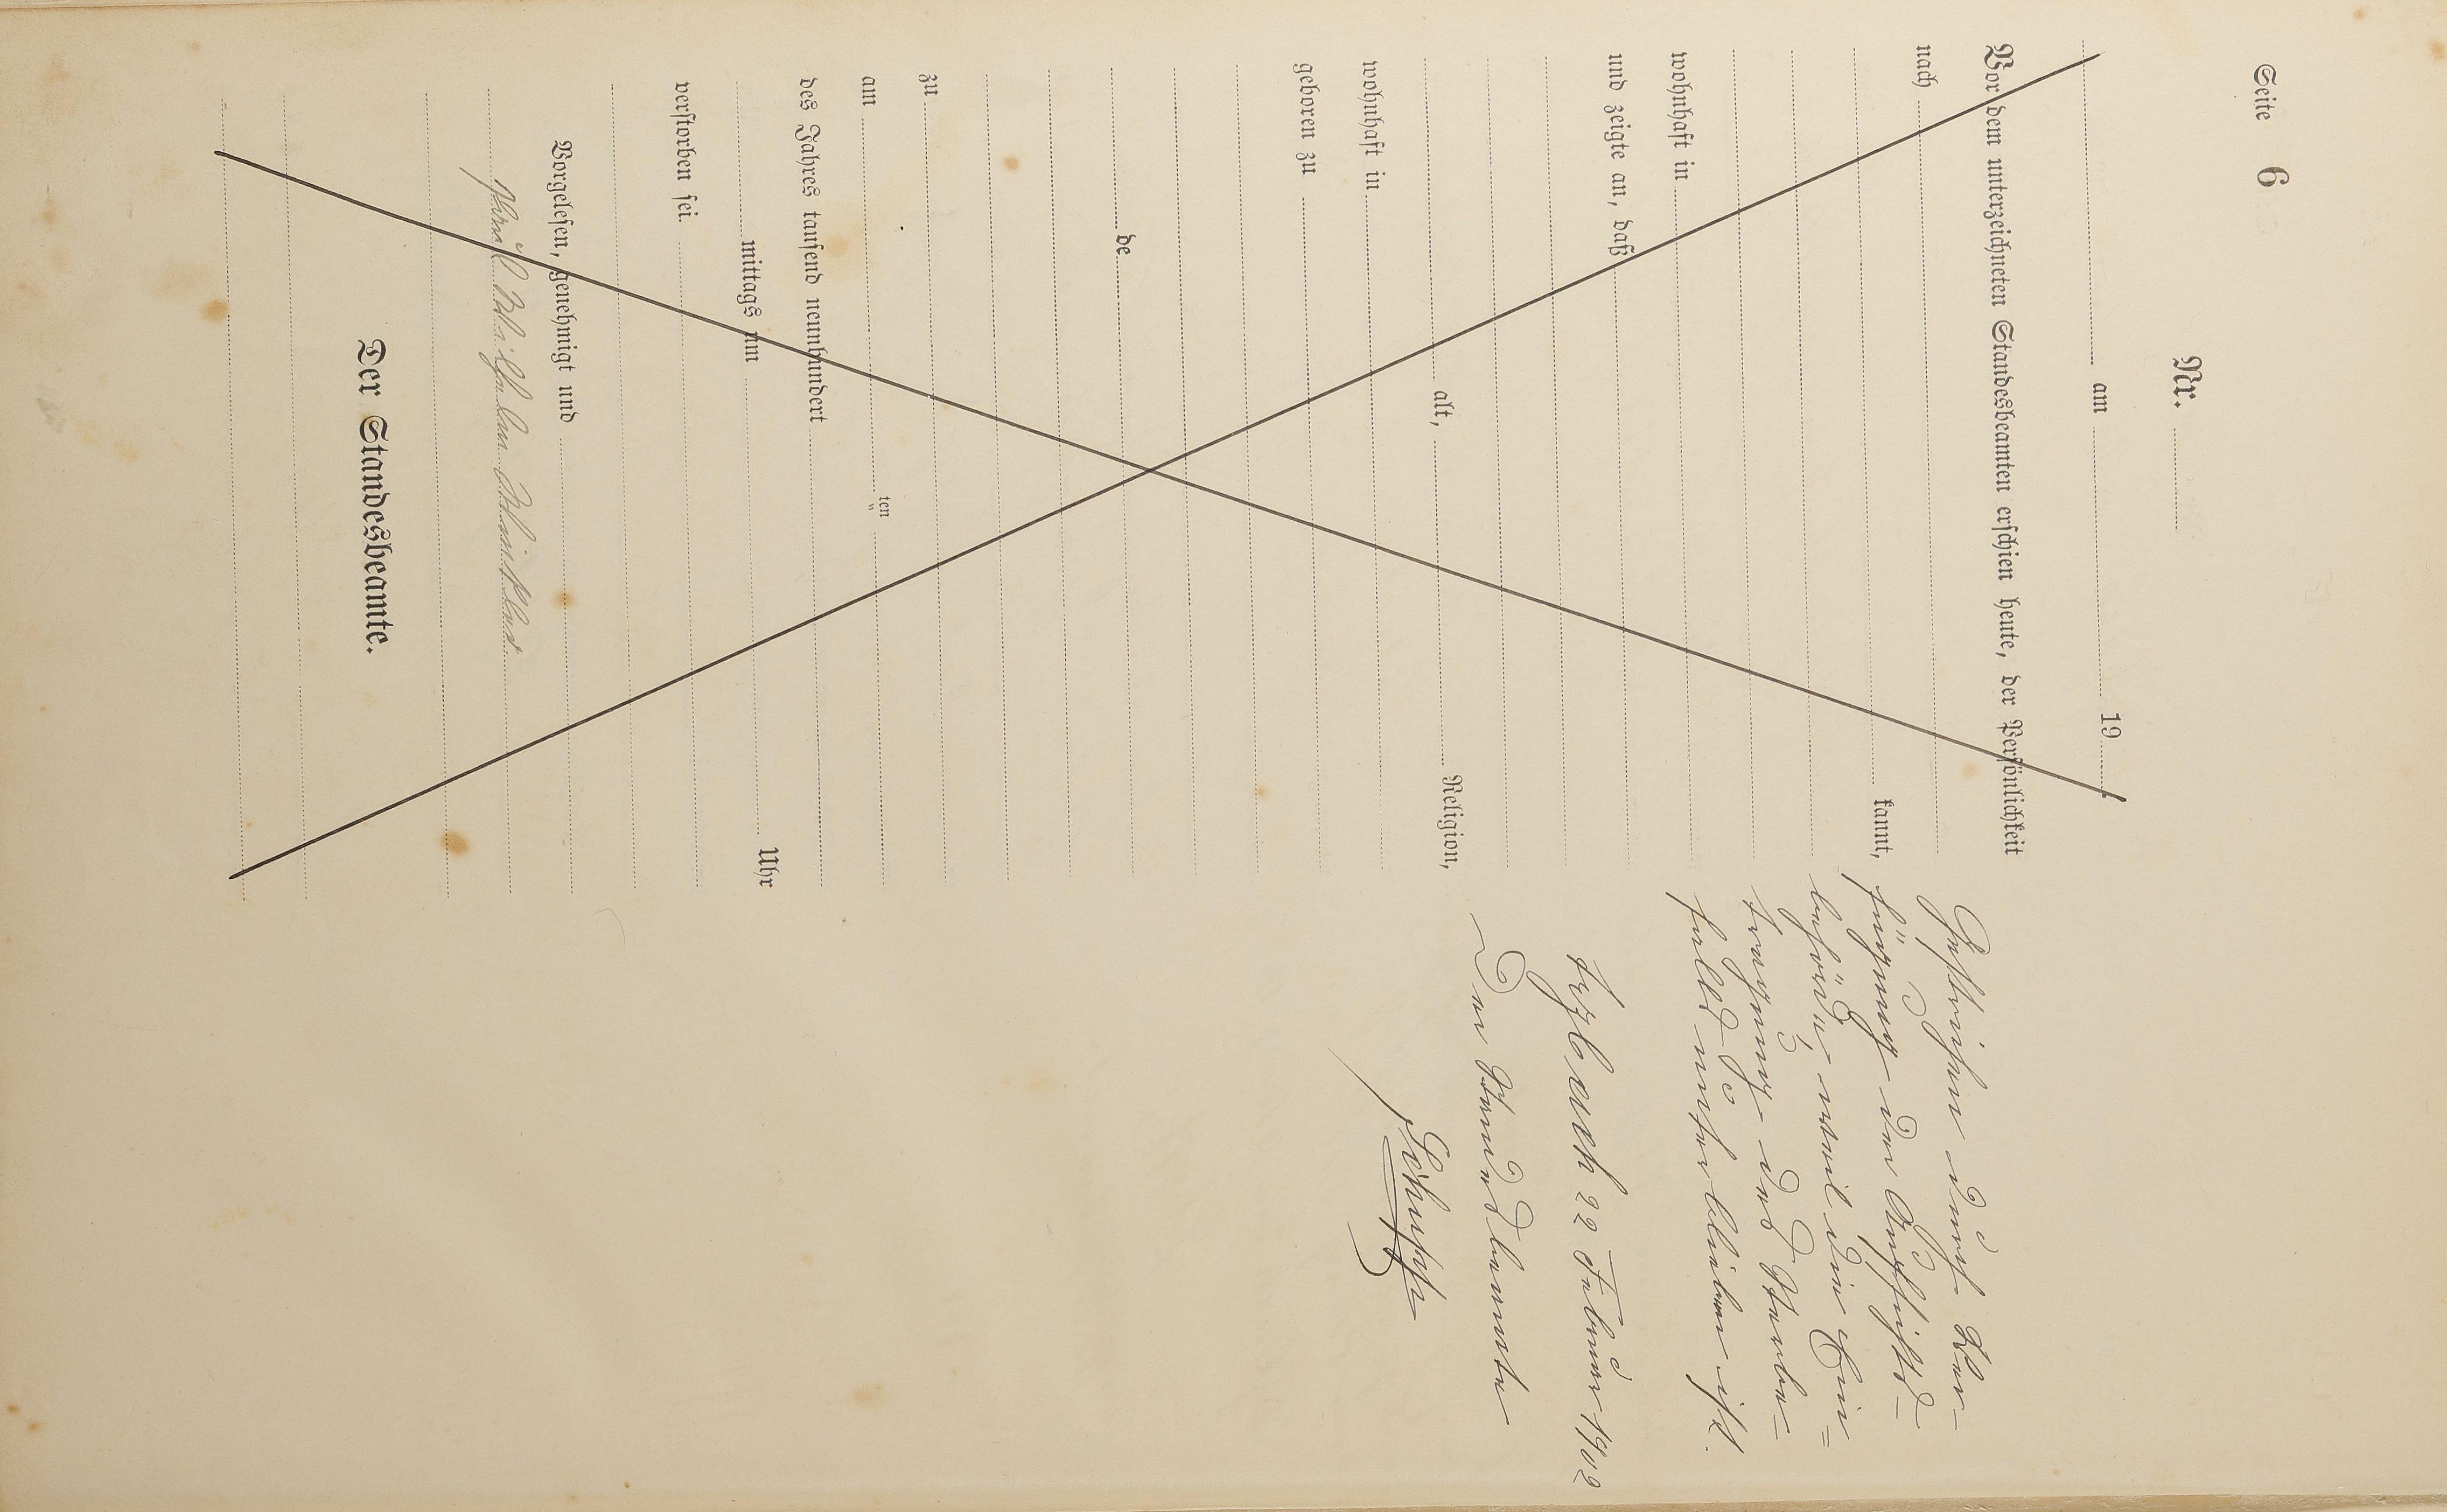 Seite 6
Nr.
am 19
Vor dem unterzeichneten Standesbeamten erschien heute, der Persönlichkeit
nach
kannt,
wohnhaft in
und zeigte an, daß
alt, Religion,
wohnhaft in
geboren zu
de
zu
am ten
des Jahres tausend neunhundert
mittags um Uhr
verstorben sei.
Vorgelesen, genehmigt und
Wilhelm
Der Standesbeamte.
Gestrichen durch Ver-
fügung der Aufsichts-
behörde, weil die Ein=
tragung des Sterbe=
falls unterblieben ist.
22 Februar 1902
Der Standesbeamte